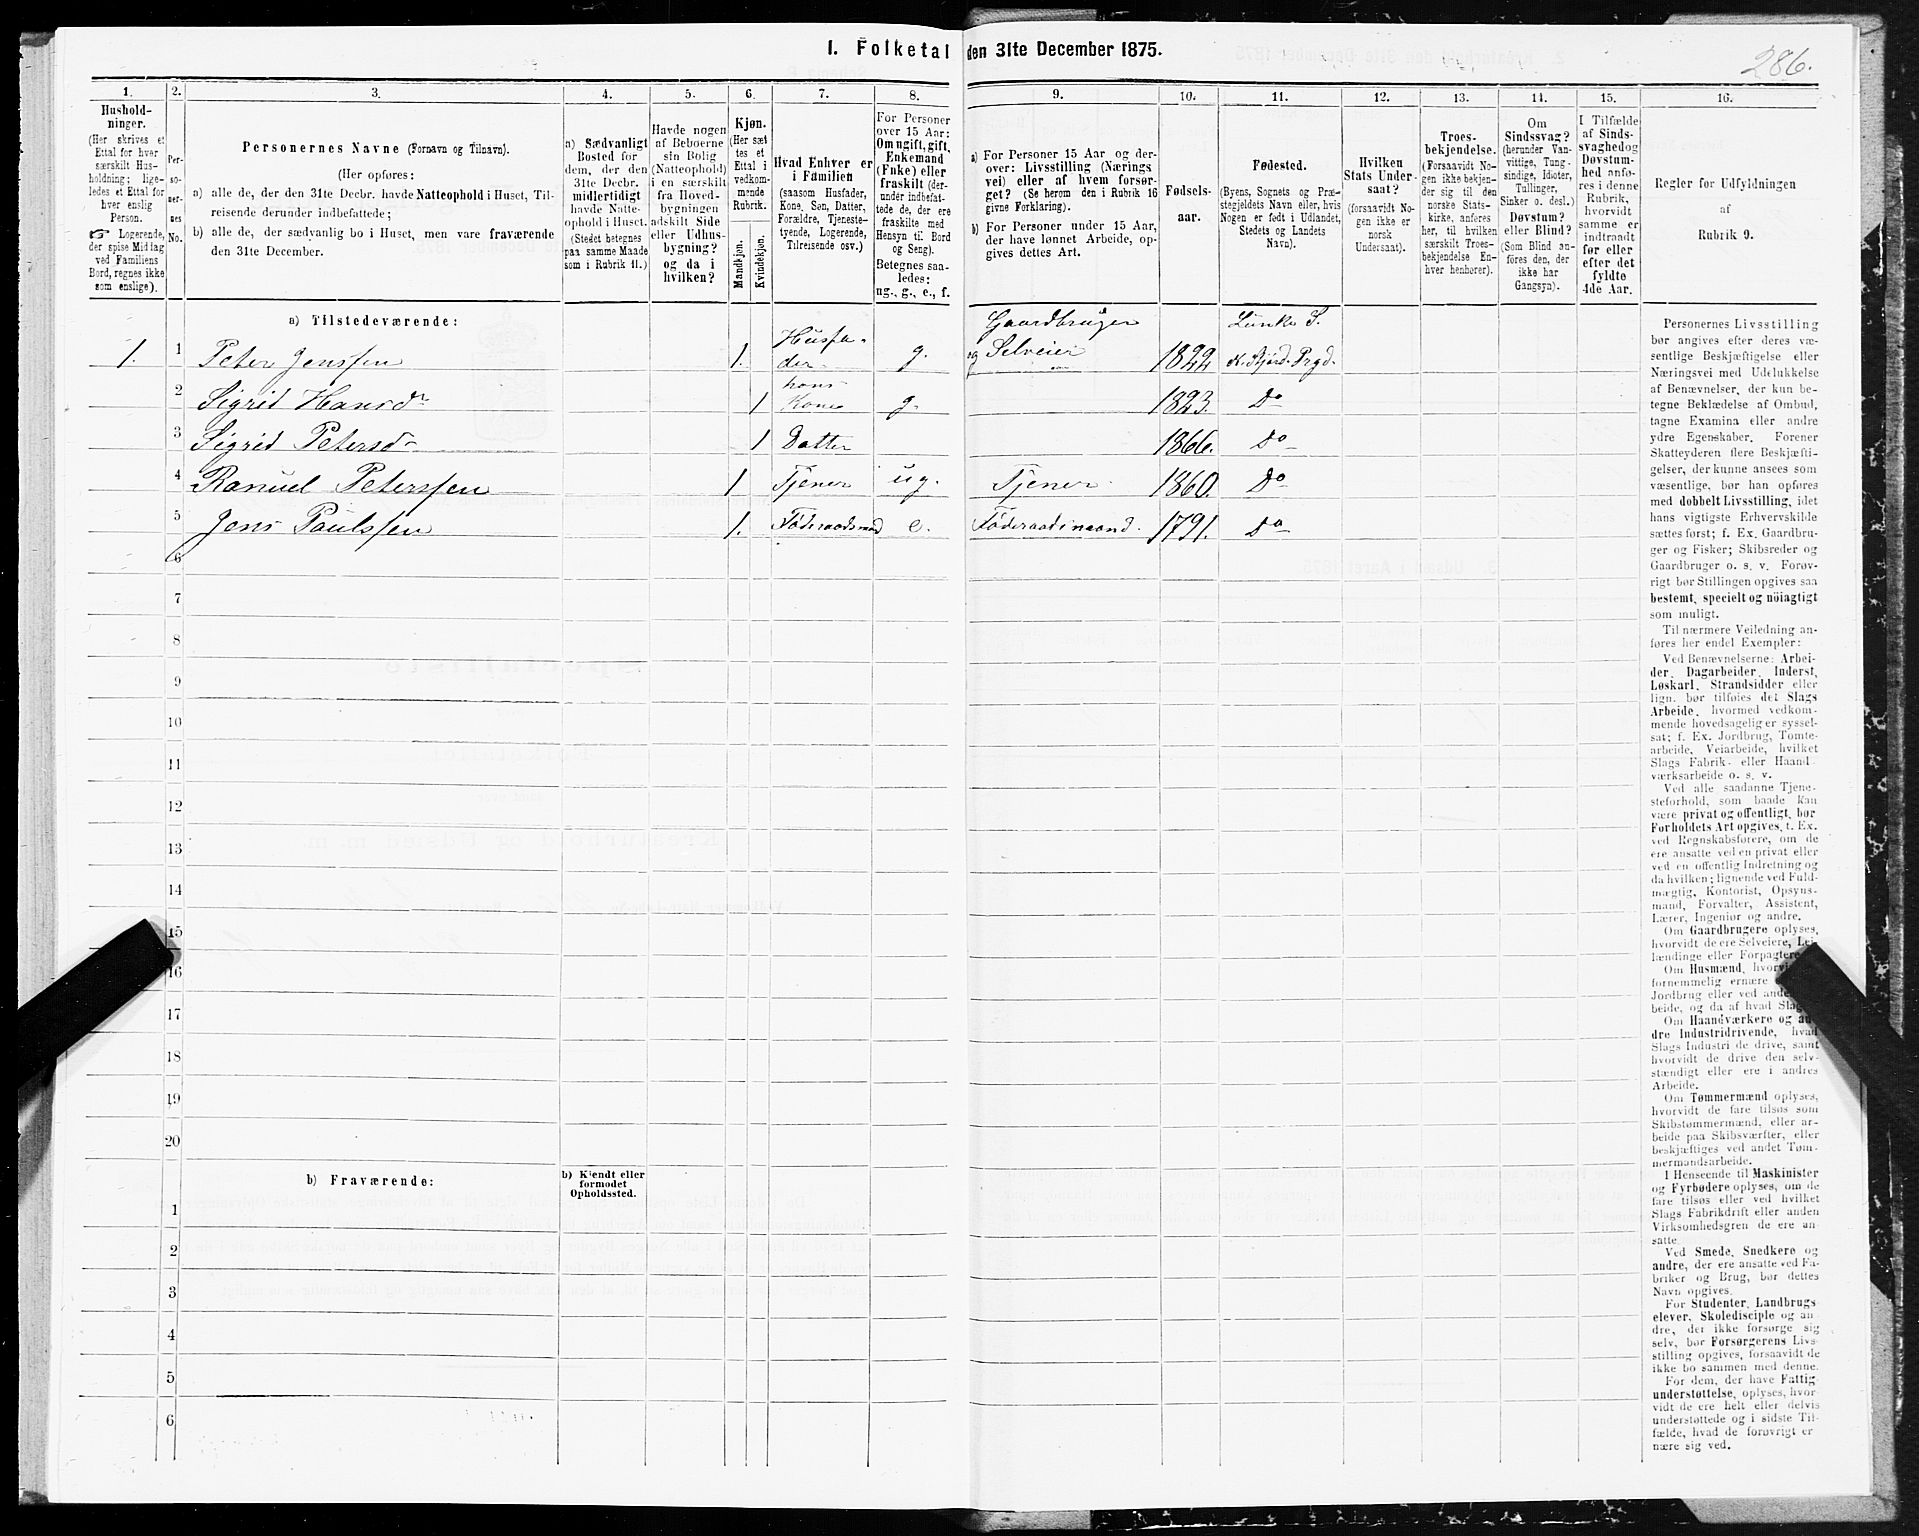 1. Folketal den 31te December 1875.
286.
1.
2.
3.
4.
5.
6.
7.
8.
9.
10.
11.
12.
13.
14.
15.
16.
Hushold-
ninger.
(Her skrives et
Ettal for hver
særskilt Hus-
holdning; lige-
ledes et Ettal for
hver enslig
Person.
☞ Logerende,
der spise Middag
ved Familiens
Bord, regnes ikke
som enslige).
Per-
so-
ner-
nes
No.
Personernes Navne (Fornavn og Tilnavn).
(Her opføres:
a) alle de, der den 31te Decbr. havde Natteophold i Huset, Til-
reisende derunder indbefattede;
b) alle de, der sædvanlig bo i Huset, men vare fraværende
den 31te December.
a) Sædvanligt
Bosted for
dem, der den
31te Decbr.
midlertidigt
havde Natte-
ophold i Huset.
(Stedet betegnes
paa samme Maade
som i Rubrik 11.)
Havde nogen
af Beboerne
sin Bolig
(Natteophold)
i en særskilt
fra Hoved-
bygningen
adskilt Side
eller Udhus-
bygning?
og da i
hvilken?
Kjøn.
(Her sæt
tes et
Ettal i
vedkom-
mende
Rubrik.
Mandkjøn.
Kvindekjøn.
Hvad Enhver er
i Familien
(saasom Husfader,
Kone, Søn, Datter,
Forældre, Tjeneste-
tyende, Logerende,
Tilreisende osv.)
For Personer
over 15 Aar:
Om ugift, gift,
Enkemand
(Enke) eller
fraskilt (der-
under indbefat-
tede de, der ere
fraskilte med
Hensyn til Bord
og Seng).
Betegnes saa-
ledes:
ug., g., e., f.
a) For Personer 15 Aar og der-
over: Livsstilling (Nærings
vei) eller af hvem forsør-
get? (Se herom den i Rubrik 16
givne Forklaring).
b) For Personer under 15 Aar,
der have lønnet Arbeide, op-
gives dettes Art.
Fødsels-
aar.
Fødested.
(Byens, Sognets og Præ-
stegjeldets Navn eller, hvis
Nogen er født i Udlandet,
Stedets og Landets
Navn).
Hvilken
Stats Under-
saat?
(forsaavidt No-
gen ikke er
norsk
Undersaat).
Troes-
bekjendelse.
(Forsaavidt No-
gen ikke bekjen-
der sig til den
norske Stats-
kirke, anføres
her, til hvilken
særskilt Troes-
bekjendelse En-
hver henhører).
Om
Sindssvag?
(herunder Van-
vittige, Tung-
sindige, Idioter,
Tullinger,
Sinker o. desl.)
Døvstum?
eller Blind?
(Som Blind an-
føres den, der
ikke har
Gangsyn).
I Tilfælde
af Sinds-
svaghed og
Døvstum-
hed anfø-
res i denne
Rubrik,
hvorvidt
samme er
indtraadt
før eller
efter det
fyldte
4de Aar.
Regler for Udfyldningen
af
Rubrik 9.
a) Tilstedeværende:
1. 1 Peter Jenssen 1. Husfa-
der g. Gaardbruger
og Selveier 1822
2 Sigrid Hansdr 1 hans
Kone g. 1823. Do
3 Sigrid Petersd 1 Datter 1866. Do
4 Petersen 1 Tjener ug. Tjener 1860. Do
5 Jens Paulssen 1. Føderaadsmand e. Føderaadsmand. 1791. Do
6
7
8
9
10
11
12
13
14
15
16
17
18
19
20
b) Fraværende:
b) Kjendt eller
formodet
Opholdssted.
1
2
3
4
5
6
Personernes Livsstilling
bør angives efter deres væ-
sentlige Beskjæftigelse eller
Næringsvei med Udelukkelse
af Benævnelser, der kun be-
tegne Beklædelse af Ombud,
tagne Examina eller andre
ydre Egenskaber. Forener
Skatteyderen flere Beskjæfti-
gelser, der kunne ansees som
væsentlige, bør han opføres
med dobbelt Livsstilling, idet
hans vigtigste Erhvervskilde
sættes først; f. Ex. Gaardbru-
ger og Fisker; Skibsreder og
Gaardbruger o. s. v. Forøv-
rigt bør Stillingen opgives saa
bestemt, specielt og nöiagtigt
som muligt.
Til nærmere Veiledning an-
føres her endel Exempler:
Ved Benævnelserne: Arbei-
der, Dagarbeider, Inderst,
Løskarl, Strandsidder eller
lign. bør tilføies det Slags
Arbeide, hvormed vedkom-
mende hovedsagelig er syssel-
sat; f. Ex. Jordbrug, Tomte-
arbeide, Veiarbeide, hvilket
Slags Fabrik- eller Haand-
værksarbeide o. s. v.
Ved alle saadanne Tjene-
steforhold, som baade kan
være privat og offentligt, bør
Forholdets Art opgives, t. Ex.
ved Regnskabsførere, om de
ere ansatte ved en privat eller
ved en offentlig Indretning og
da hvilken; lignende ved Fuld-
mægtig, Kontorist, Opsyns-
mand, Forvalter, Assistent,
Lærer, Ingeniør og andre.
Om Gaardbrugere oplyses,
hvorvidt de ere Selveiere, Lei-
lændinge eller Forpagtere
Om Husmænd,
fornemmelig ernære
Jordbrug eller ved
beide, og da af hvad
Om Haandværkere og an-
dre Industridrivende, hvad
Slags Industri de drive, samt
hvorvidt de drive den selv-
stændigt eller ere i andres
Arbeide.
Om Tømmermænd oplyses,
hvorvidt de fare tilsøs som
Skibstømmermænd, eller ar-
beide paa Skibsværfter, eller
beskjæftiges ved andet Tøm-
mermandsarbeide.
I Henseende til Maskinister
og Fyrbødere oplyses, om de
fare tilsøs eller ved hvilket
Slags Fabrikdrift eller anden
Virksomhedsgren de ere an-
satte.
Ved Smede, Snedkere og
andre, der ere ansatte ved Fa-
briker og Brug, bør dettes
Navn opgives.
For Studenter, Landbrugs
elever, Skoledisciple og an-
dre, der ikke forsørge sig
selv, bør Forsørgerens Livs-
stilling opgives, forsaavidt de
ikke bo sammen med denne.
For dem, der have Fattig
understøttelse, oplyses, hvor-
vidt de ere helt eller delvis
understøttede og i sidste Til-
fælde, hvad de forøvrigt er
nære sig ved.